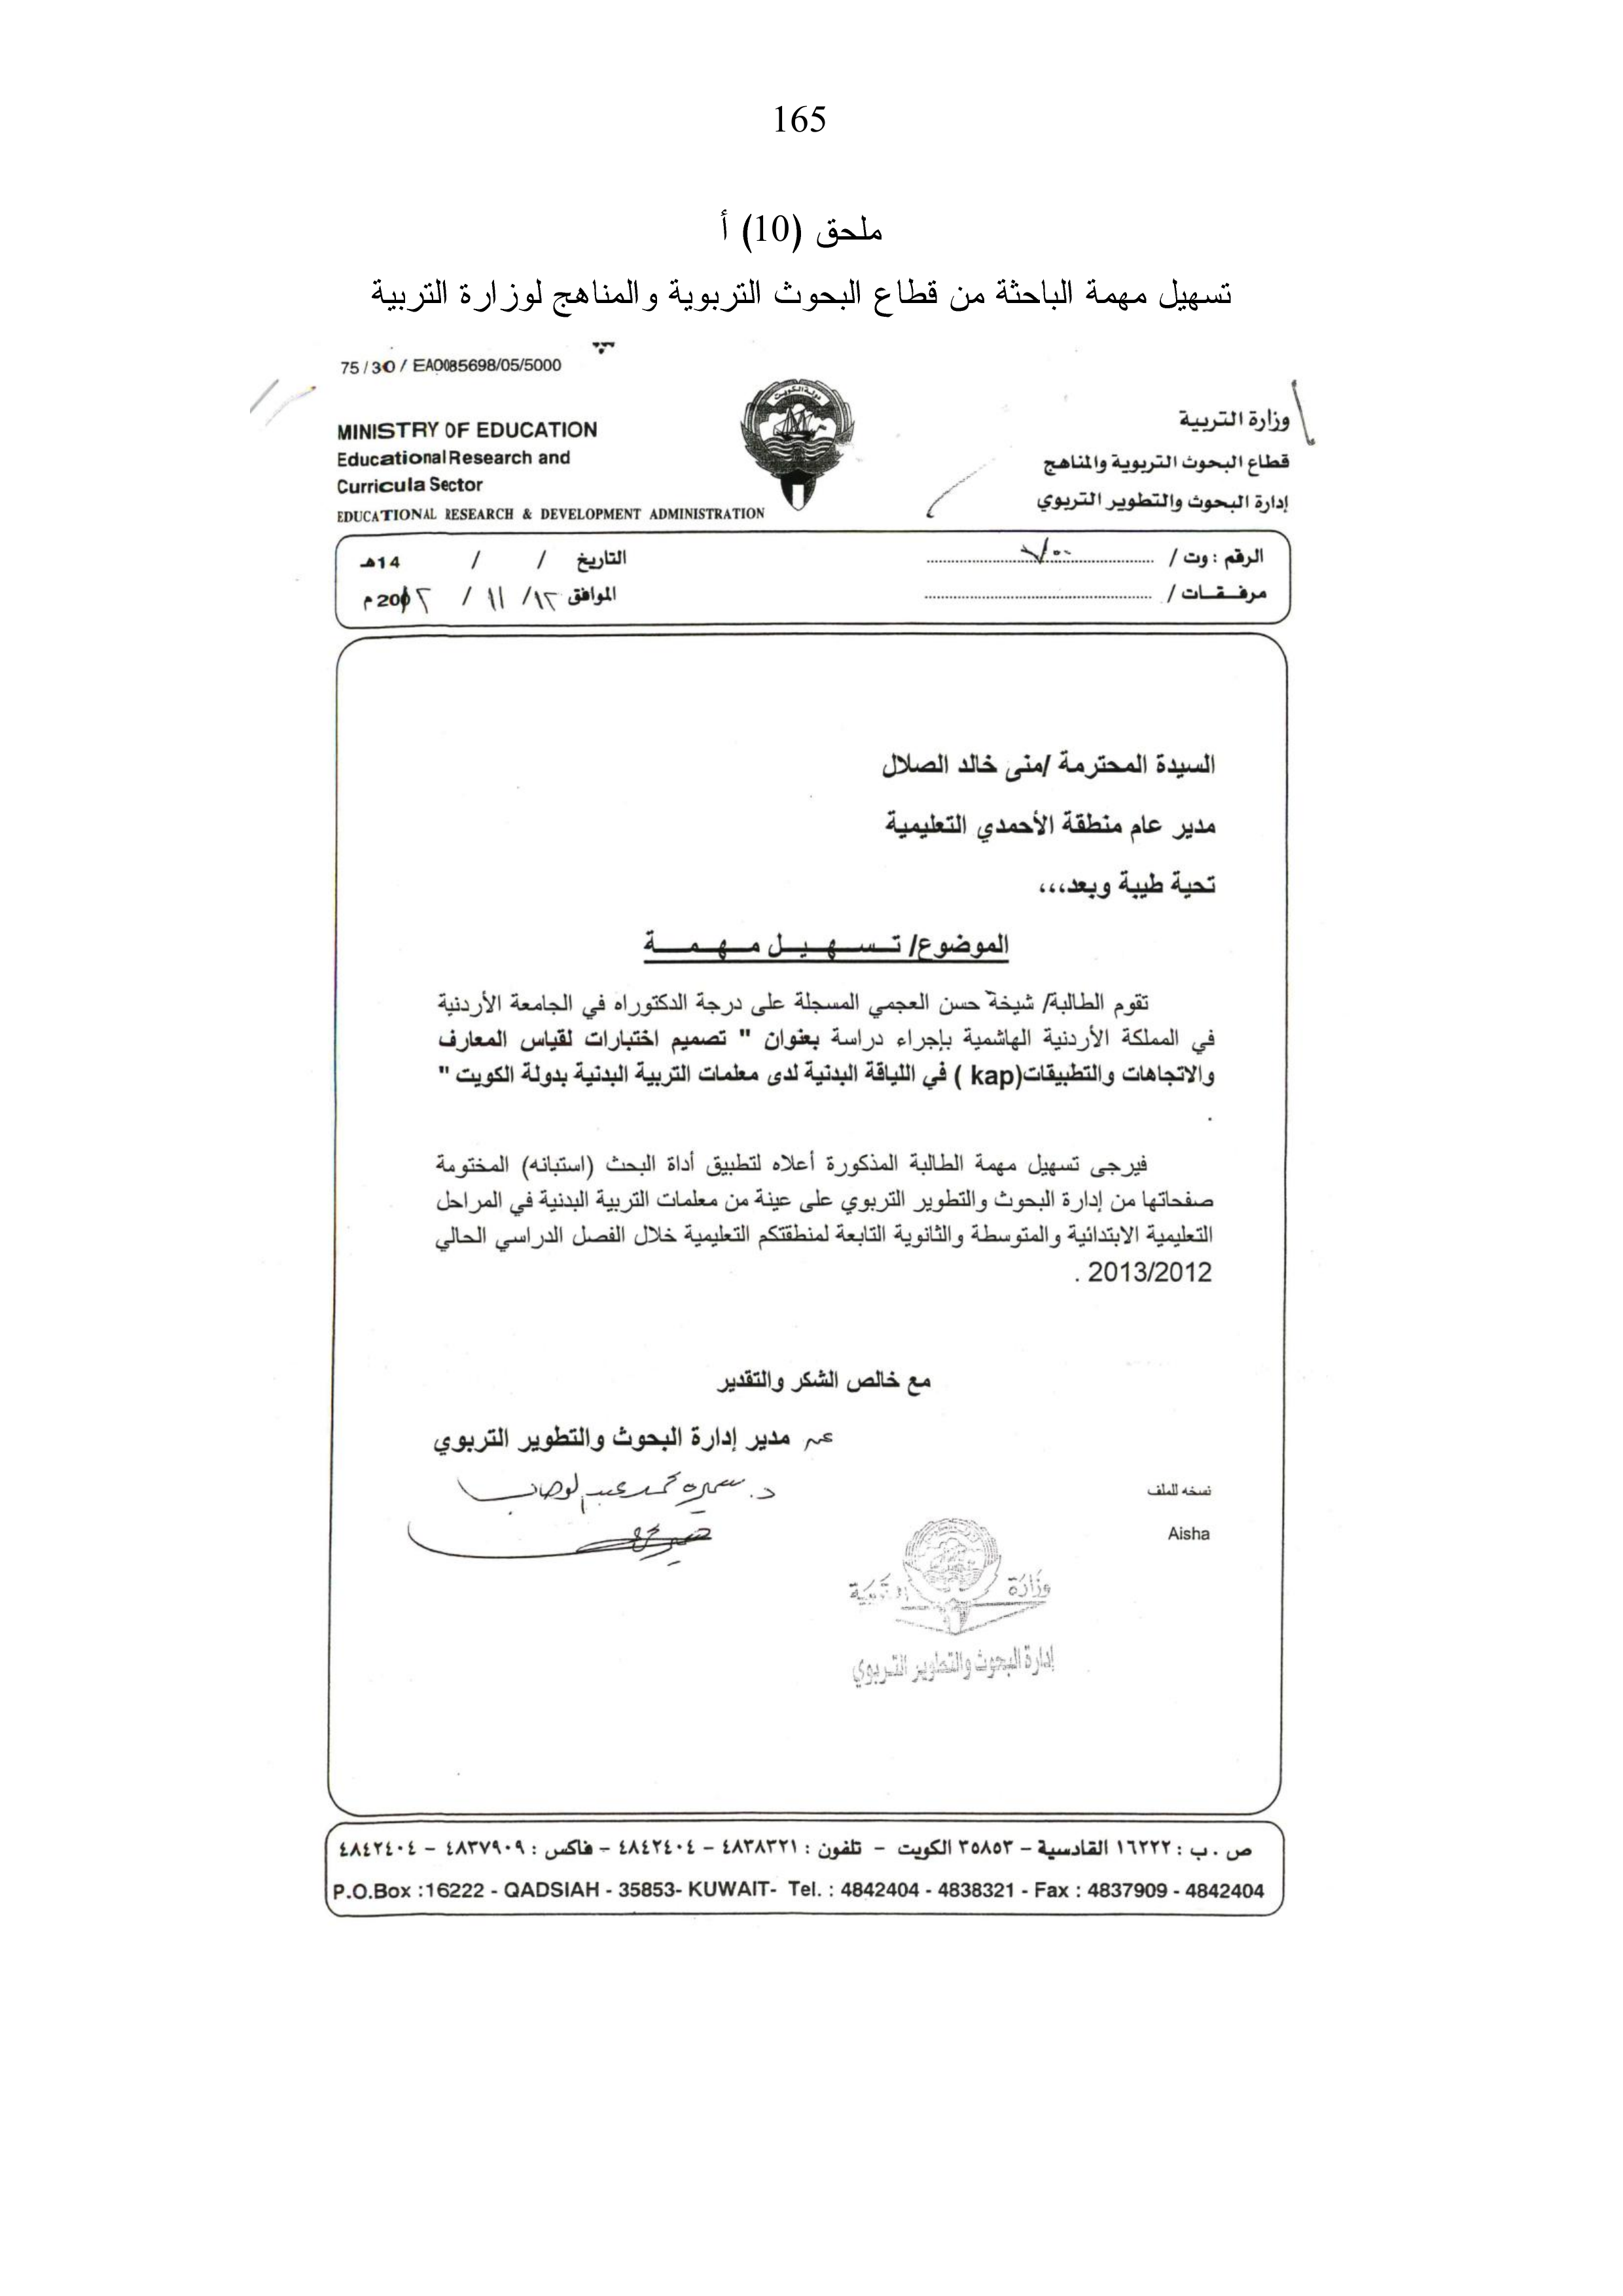 165
ملحق (10) أ
تسهيل مهمة الباحثة من قطاع البحوث التربوية والمناهج لوزارة التربية
75/30/ EA0085698/05/5000
MINISTRY OF EDUCATION
Educational Research and
Curricula Sector
EDUCATIONAL RESEARCH & DEVELOPMENT ADMINISTRATION
دولة الكويت
وزارة التربية
قطاع البحوث التربوية والمناهج
إدارة البحوث والتطوير التربوي
الرقم : وت /
مرفقات /
التاريخ / / 14هـ
الموافق ١٢/ ١١ / 20١٢ م
السيدة المحترمة /منى خالد الصلال
مدير عام منطقة الأحمدي التعليمية
تحية طيبة وبعد،،،
الموضوع/ تسهيل مهمة
تقوم الطالبة/ شيخة حسن العجمي المسجلة على درجة الدكتوراه في الجامعة الأردنية
في المملكة الأردنية الهاشمية بإجراء دراسة بعنوان " تصميم اختبارات لقياس المعارف
والاتجاهات والتطبيقات(kap ) في اللياقة البدنية لدى معلمات التربية البدنية بدولة الكويت "
.
فيرجى تسهيل مهمة الطالبة المذكورة أعلاه لتطبيق أداة البحث (استبانه) المختومة
صفحاتها من إدارة البحوث والتطوير التربوي على عينة من معلمات التربية البدنية في المراحل
التعليمية الابتدائية والمتوسطة والثانوية التابعة لمنطقتكم التعليمية خلال الفصل الدراسي الحالي
2013/2012 .
مع خالص الشكر والتقدير
مدير إدارة البحوث والتطوير التربوي
د. سميرة محمد عبد الوهاب
نسخه للملف
Aisha
وزارة التربية
إدارة البحوث والتطوير التربوي
ص . ب : ١٦٢٢٢ القادسية – ٣٥٨٥٣ الكويت – تلفون : ٤٨٣٨٣٢١ – ٤٨٤٢٤٠٤ – فاكس : ٤٨٣٧٩٠٩ – ٤٨٤٢٤٠٤
P.O.Box :16222 - QADSIAH - 35853- KUWAIT- Tel. : 4842404 - 4838321 - Fax : 4837909 - 4842404